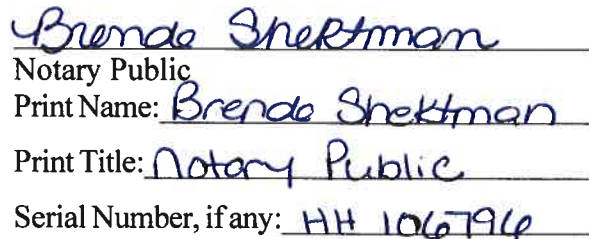 Brenda Shektman
Notary Public
Print Name: Brenda Shektman
Print Title: Notary Public
Serial Number, if any: HH 106796